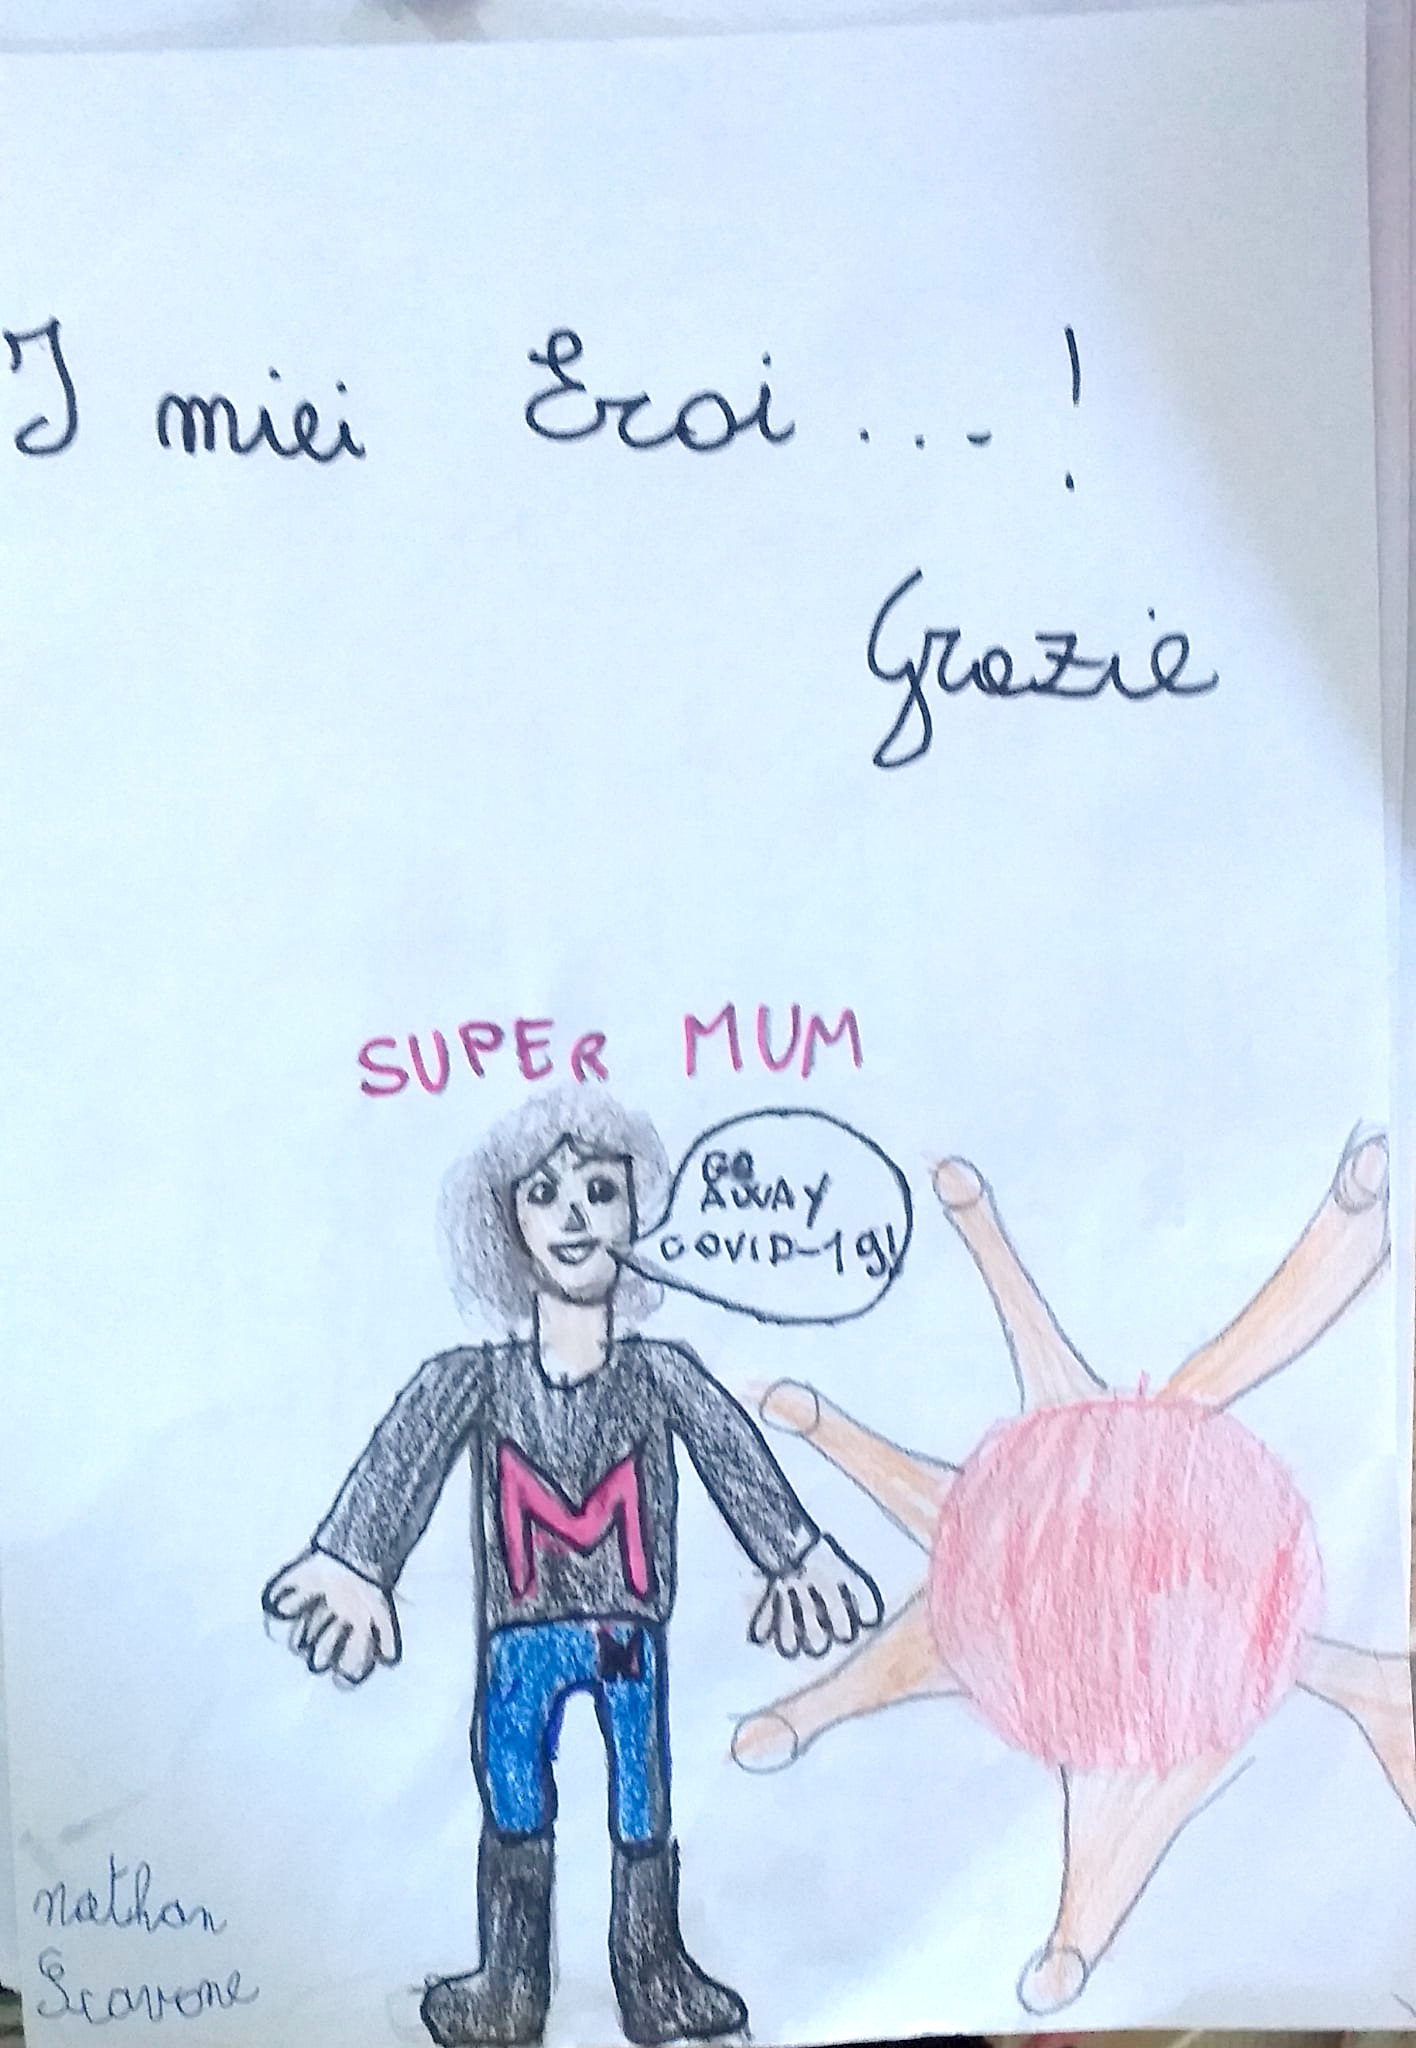 I miei Eroi...!
Grazie
SUPER MUM
GO
AWAY
COVID-19!
M
M
Nathan
Scavone